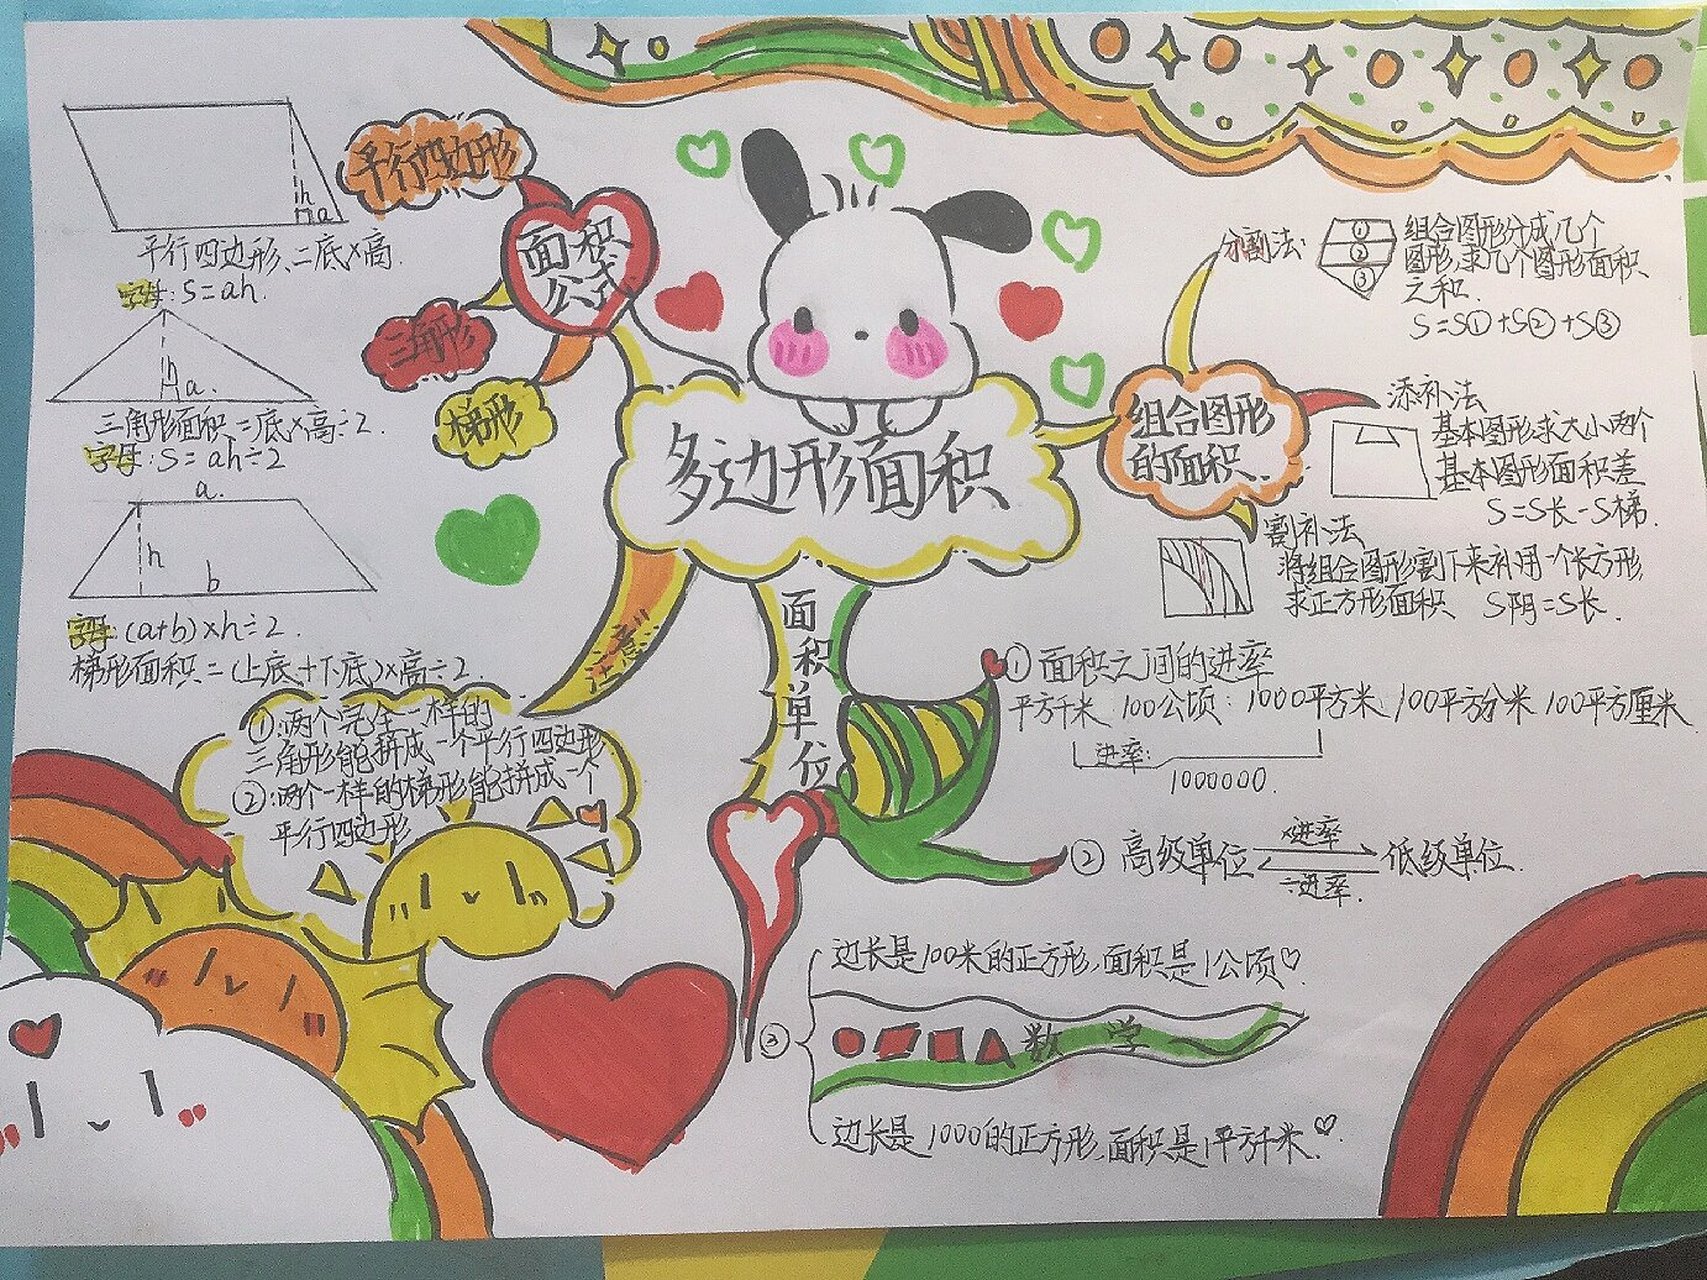 平行四边形
h
a
平行四边形:二底×高.
字母:S=ah.
面积
公式
三角形
h
a.
三角形面积=底×高÷2.
字母:S=ah÷2
梯形
a.
h
b
字母:(a+b)×h÷2.
梯形面积=(上底+下底)×高÷2.
多边形面积
注意
①:两个完全一样的
三角形能拼成一个平行四边形.
②:两个一样的梯形能拼成一个
平行四边形
组合图形
的面积.
分割法:
①
②
③
组合图形分成几个
图形,求几个图形面积
之和.
S=S①+S②+S③
添补法
基本图形求大小两个
基本图形面积差
S=S长-S梯.
割补法
将组合图形割下来补用一个长方形,
求正方形面积 S阴=S长.
面积单位
①面积之间的进率
平方千米 100公顷: 1000平方米 100平方分米 100平方厘米
进率:
1000000.
②高级单位 ×进率 低级单位.
÷进率.
③
边长是100米的正方形,面积是1公顷♡
数学
边长是1000的正方形,面积是1平方千米.♡